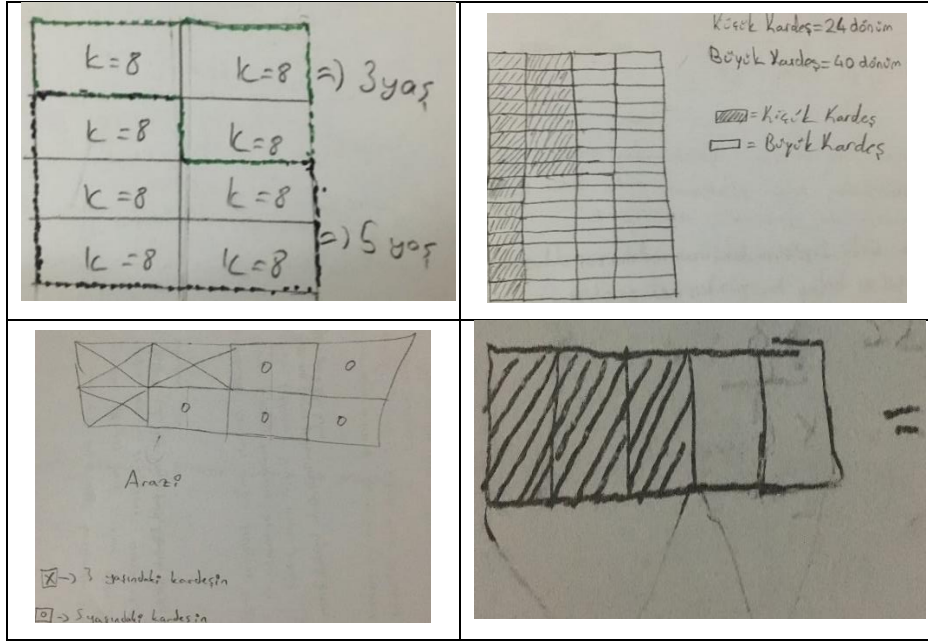 k=8 k=8 =) 3 yaş
k=8 k=8
k=8 k=8
k=8 k=8 =) 5 yaş
Küçük Kardeş=24 dönüm
Büyük Kardeş=40 dönüm
= Küçük Kardeş
= Büyük Kardeş
o o
o o o
Arazi
X -> 3 yaşındaki kardeşin
o -> 5 yaşındaki kardeşin
=